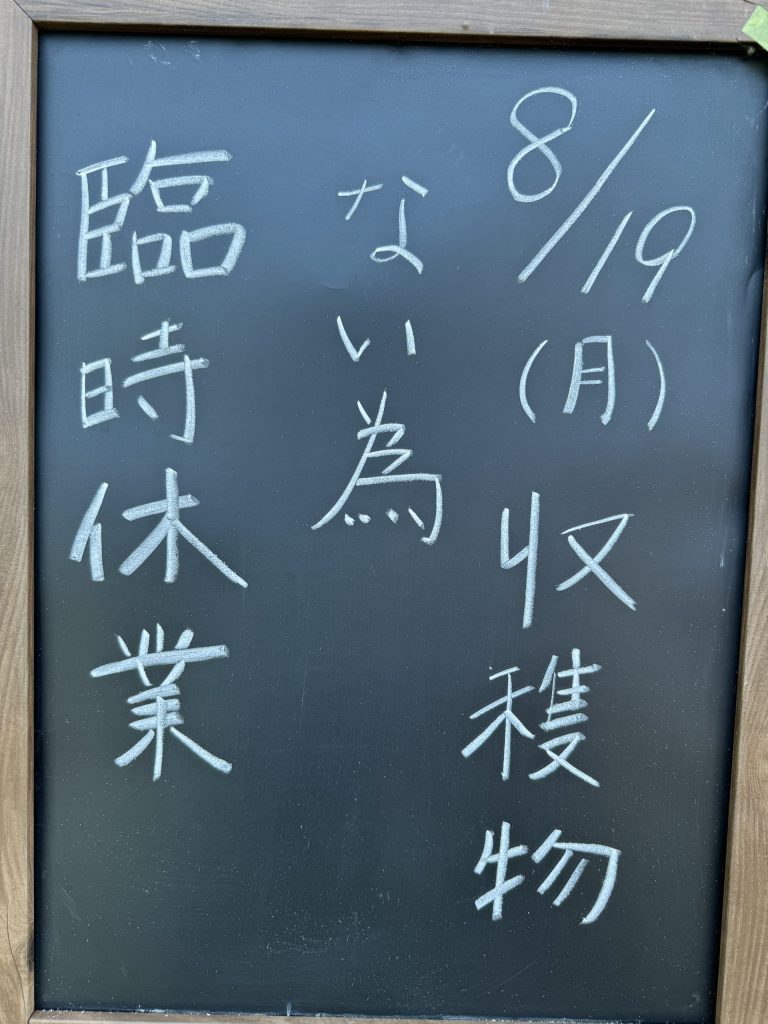 8/19(月)収穫物
ない為
臨時休業